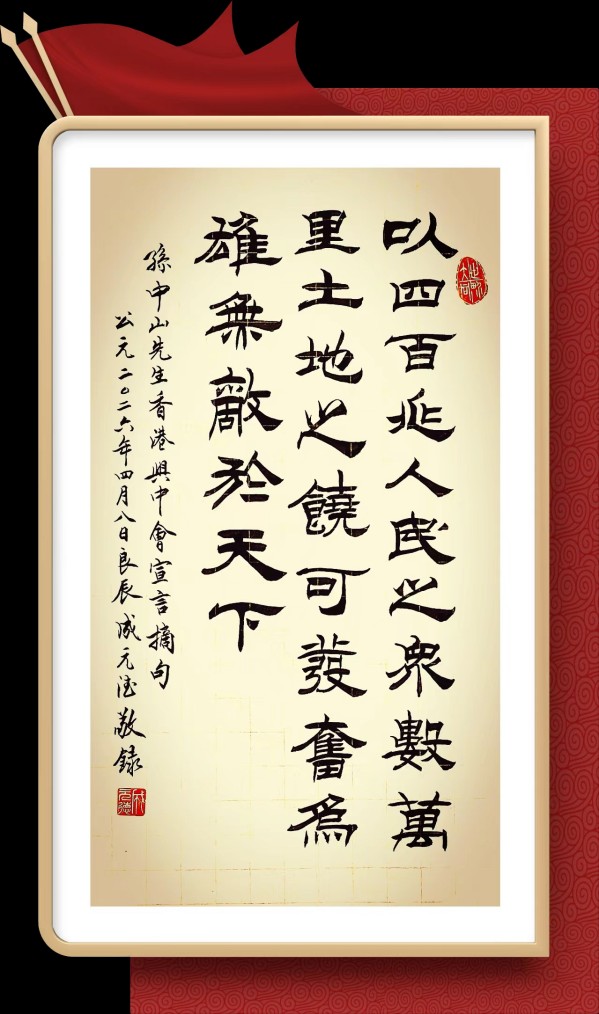 以四百兆人民之眾數萬
里土地之饒可發奮爲
雄無敵於天下
孫中山先生香港興中會宣言摘句
公元二〇二六年四月八日良辰成元德敬錄
成元德